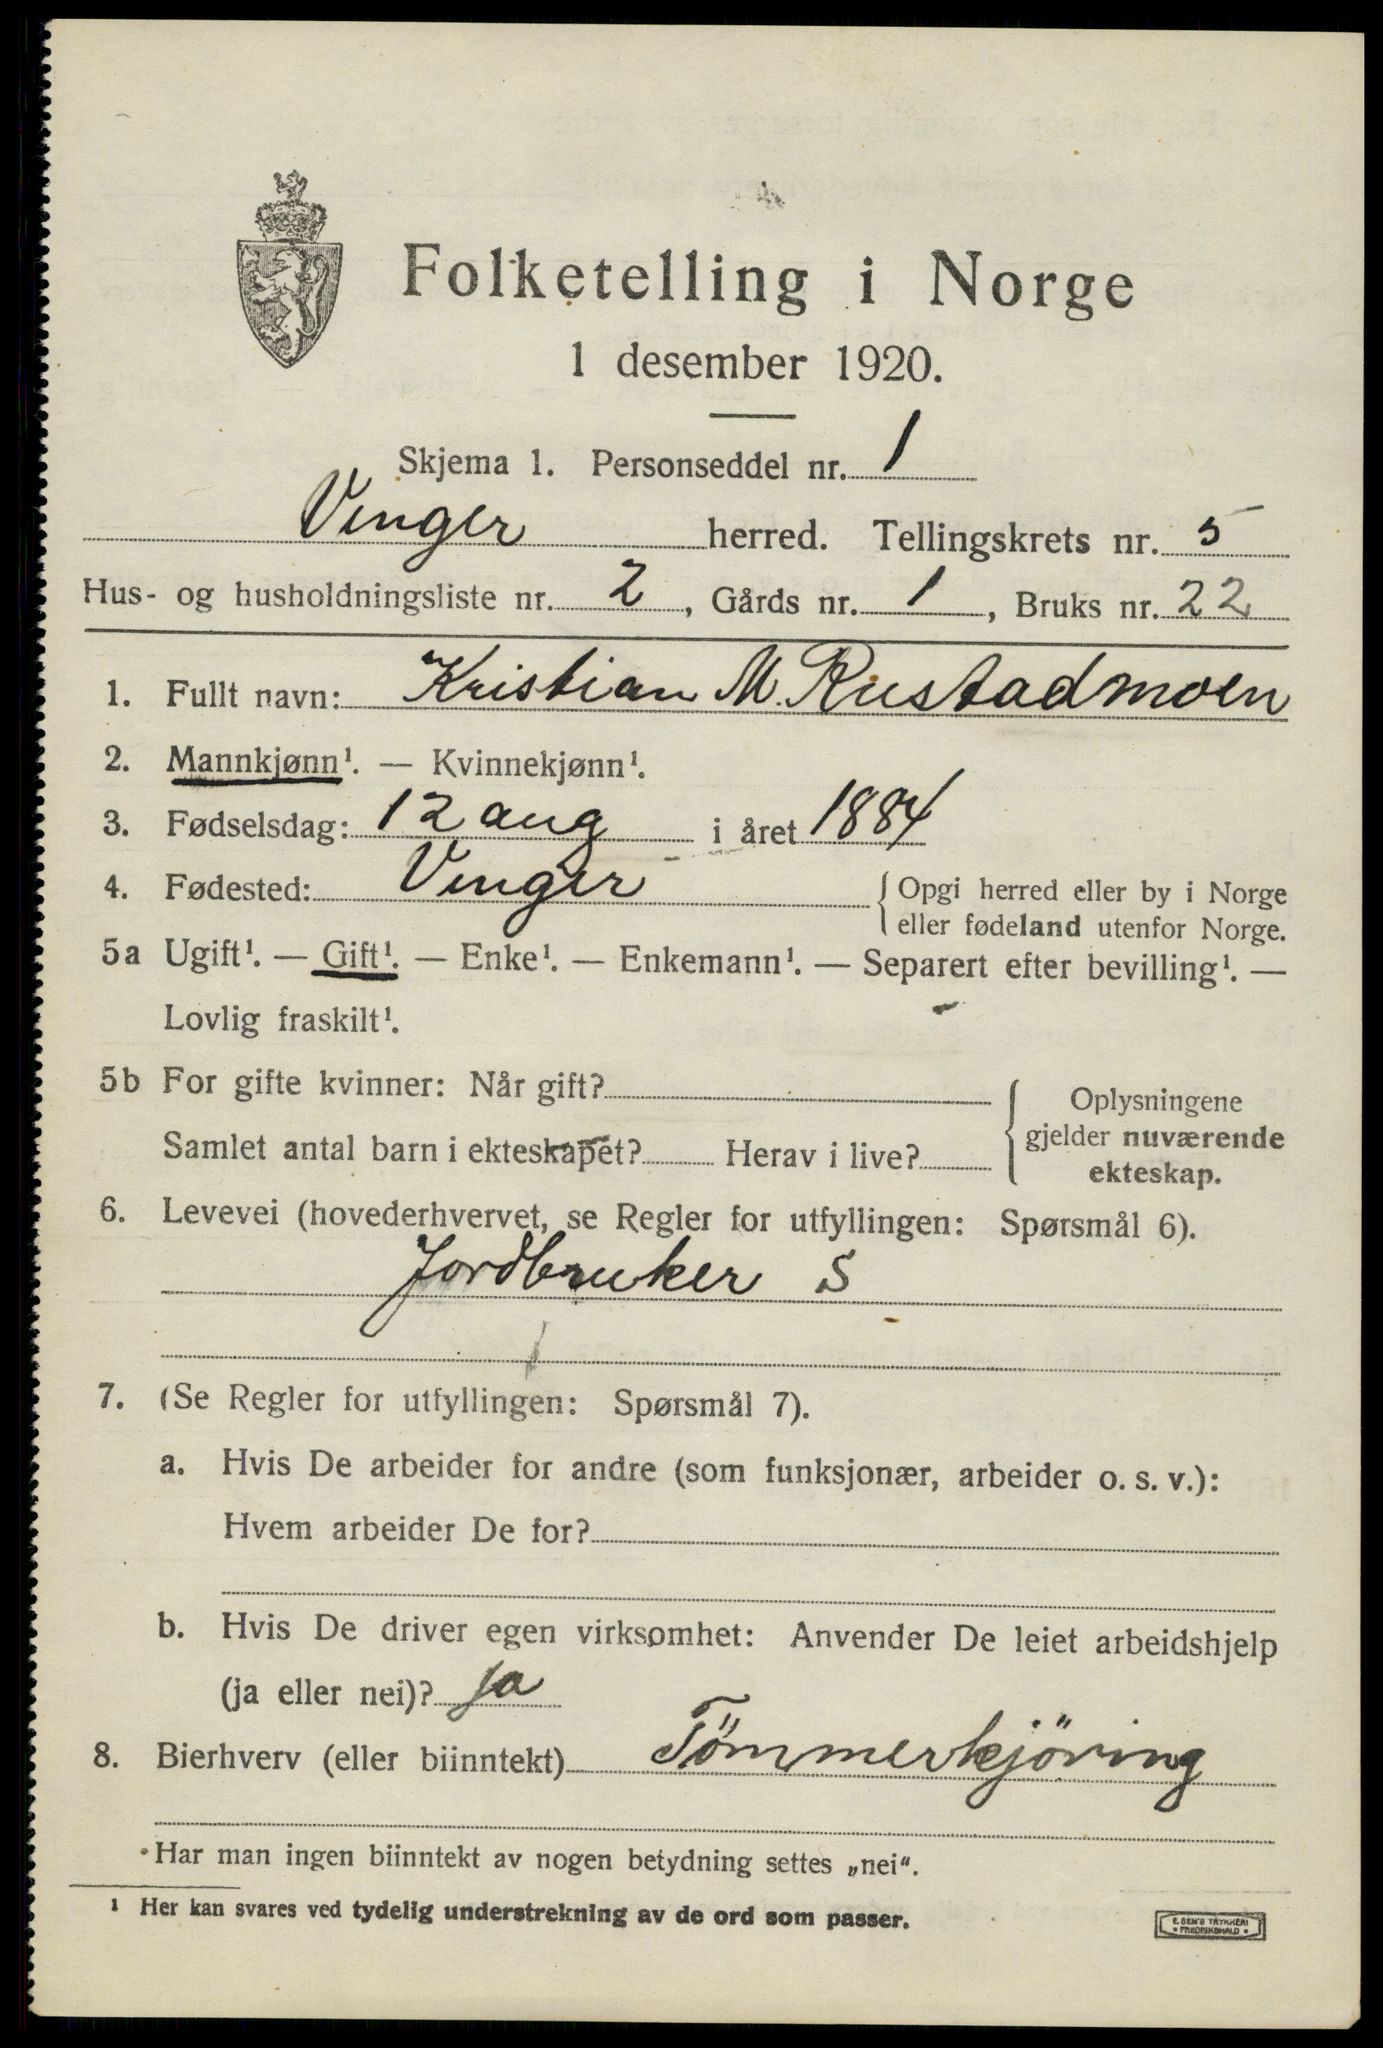 Folketelling i Norge
1 desember 1920.
Skjema 1. Personseddel nr. 1
Vinger herred. Tellingskrets nr. 5
Hus- og husholdningsliste nr. 2, Gårds nr. 1, Bruks nr. 22
1. Fullt navn: Kristian M. Rustadmoen
2. Mannkjønn¹. — Kvinnekjønn¹.
3. Fødselsdag: 12 aug i året 1884
4. Fødested: Vinger { Opgi herred eller by i Norge
eller fødeland utenfor Norge.
5a Ugift¹. — Gift¹. — Enke¹. — Enkemann¹. — Separert efter bevilling¹. —
Lovlig fraskilt¹.
5b For gifte kvinner: Når gift? { Oplysningene
gjelder nuværende
Samlet antal barn i ekteskapet? Herav i live?
ekteskap.
6. Levevei (hovederhvervet, se Regler for utfyllingen: Spørsmål 6).
Jordbruker S
7. (Se Regler for utfyllingen: Spørsmål 7).
a. Hvis De arbeider for andre (som funksjonær, arbeider o. s. v.):
Hvem arbeider De for?
b. Hvis De driver egen virksomhet: Anvender De leiet arbeidshjelp
(ja eller nei)? Ja
8. Bierhverv (eller biinntekt) Tömmerkjöring
Har man ingen biinntekt av nogen betydning settes „nei“.
¹ Her kan svares ved tydelig understrekning av de ord som passer.
E. SEM'S TRYKKERI
FREDRIKSHALD